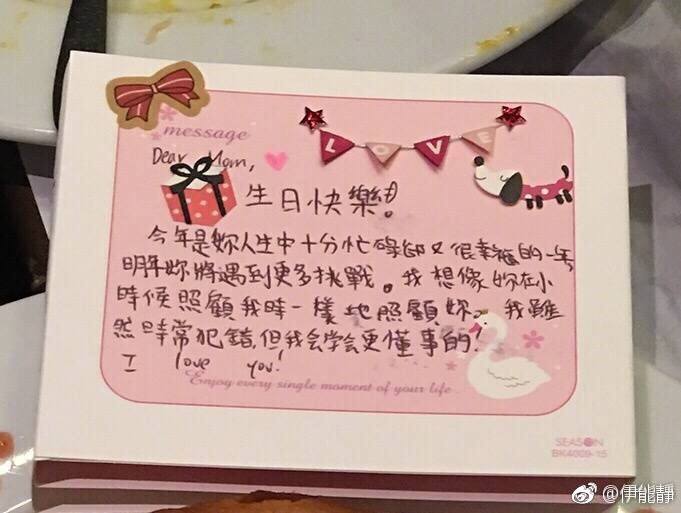 message
LOVE
Dear Mom,
生日快樂!
今年是妳人生中十分忙碌卻又很幸福的一年
明年妳將遇到更多挑戰。我想像妳在小
時候照顧我時一樣地照顧妳。我雖
然時常犯錯,但我会学会更懂事的!
I love you!
Enjoy every single moment of your life
SEASON
BK4009-15
@伊能靜